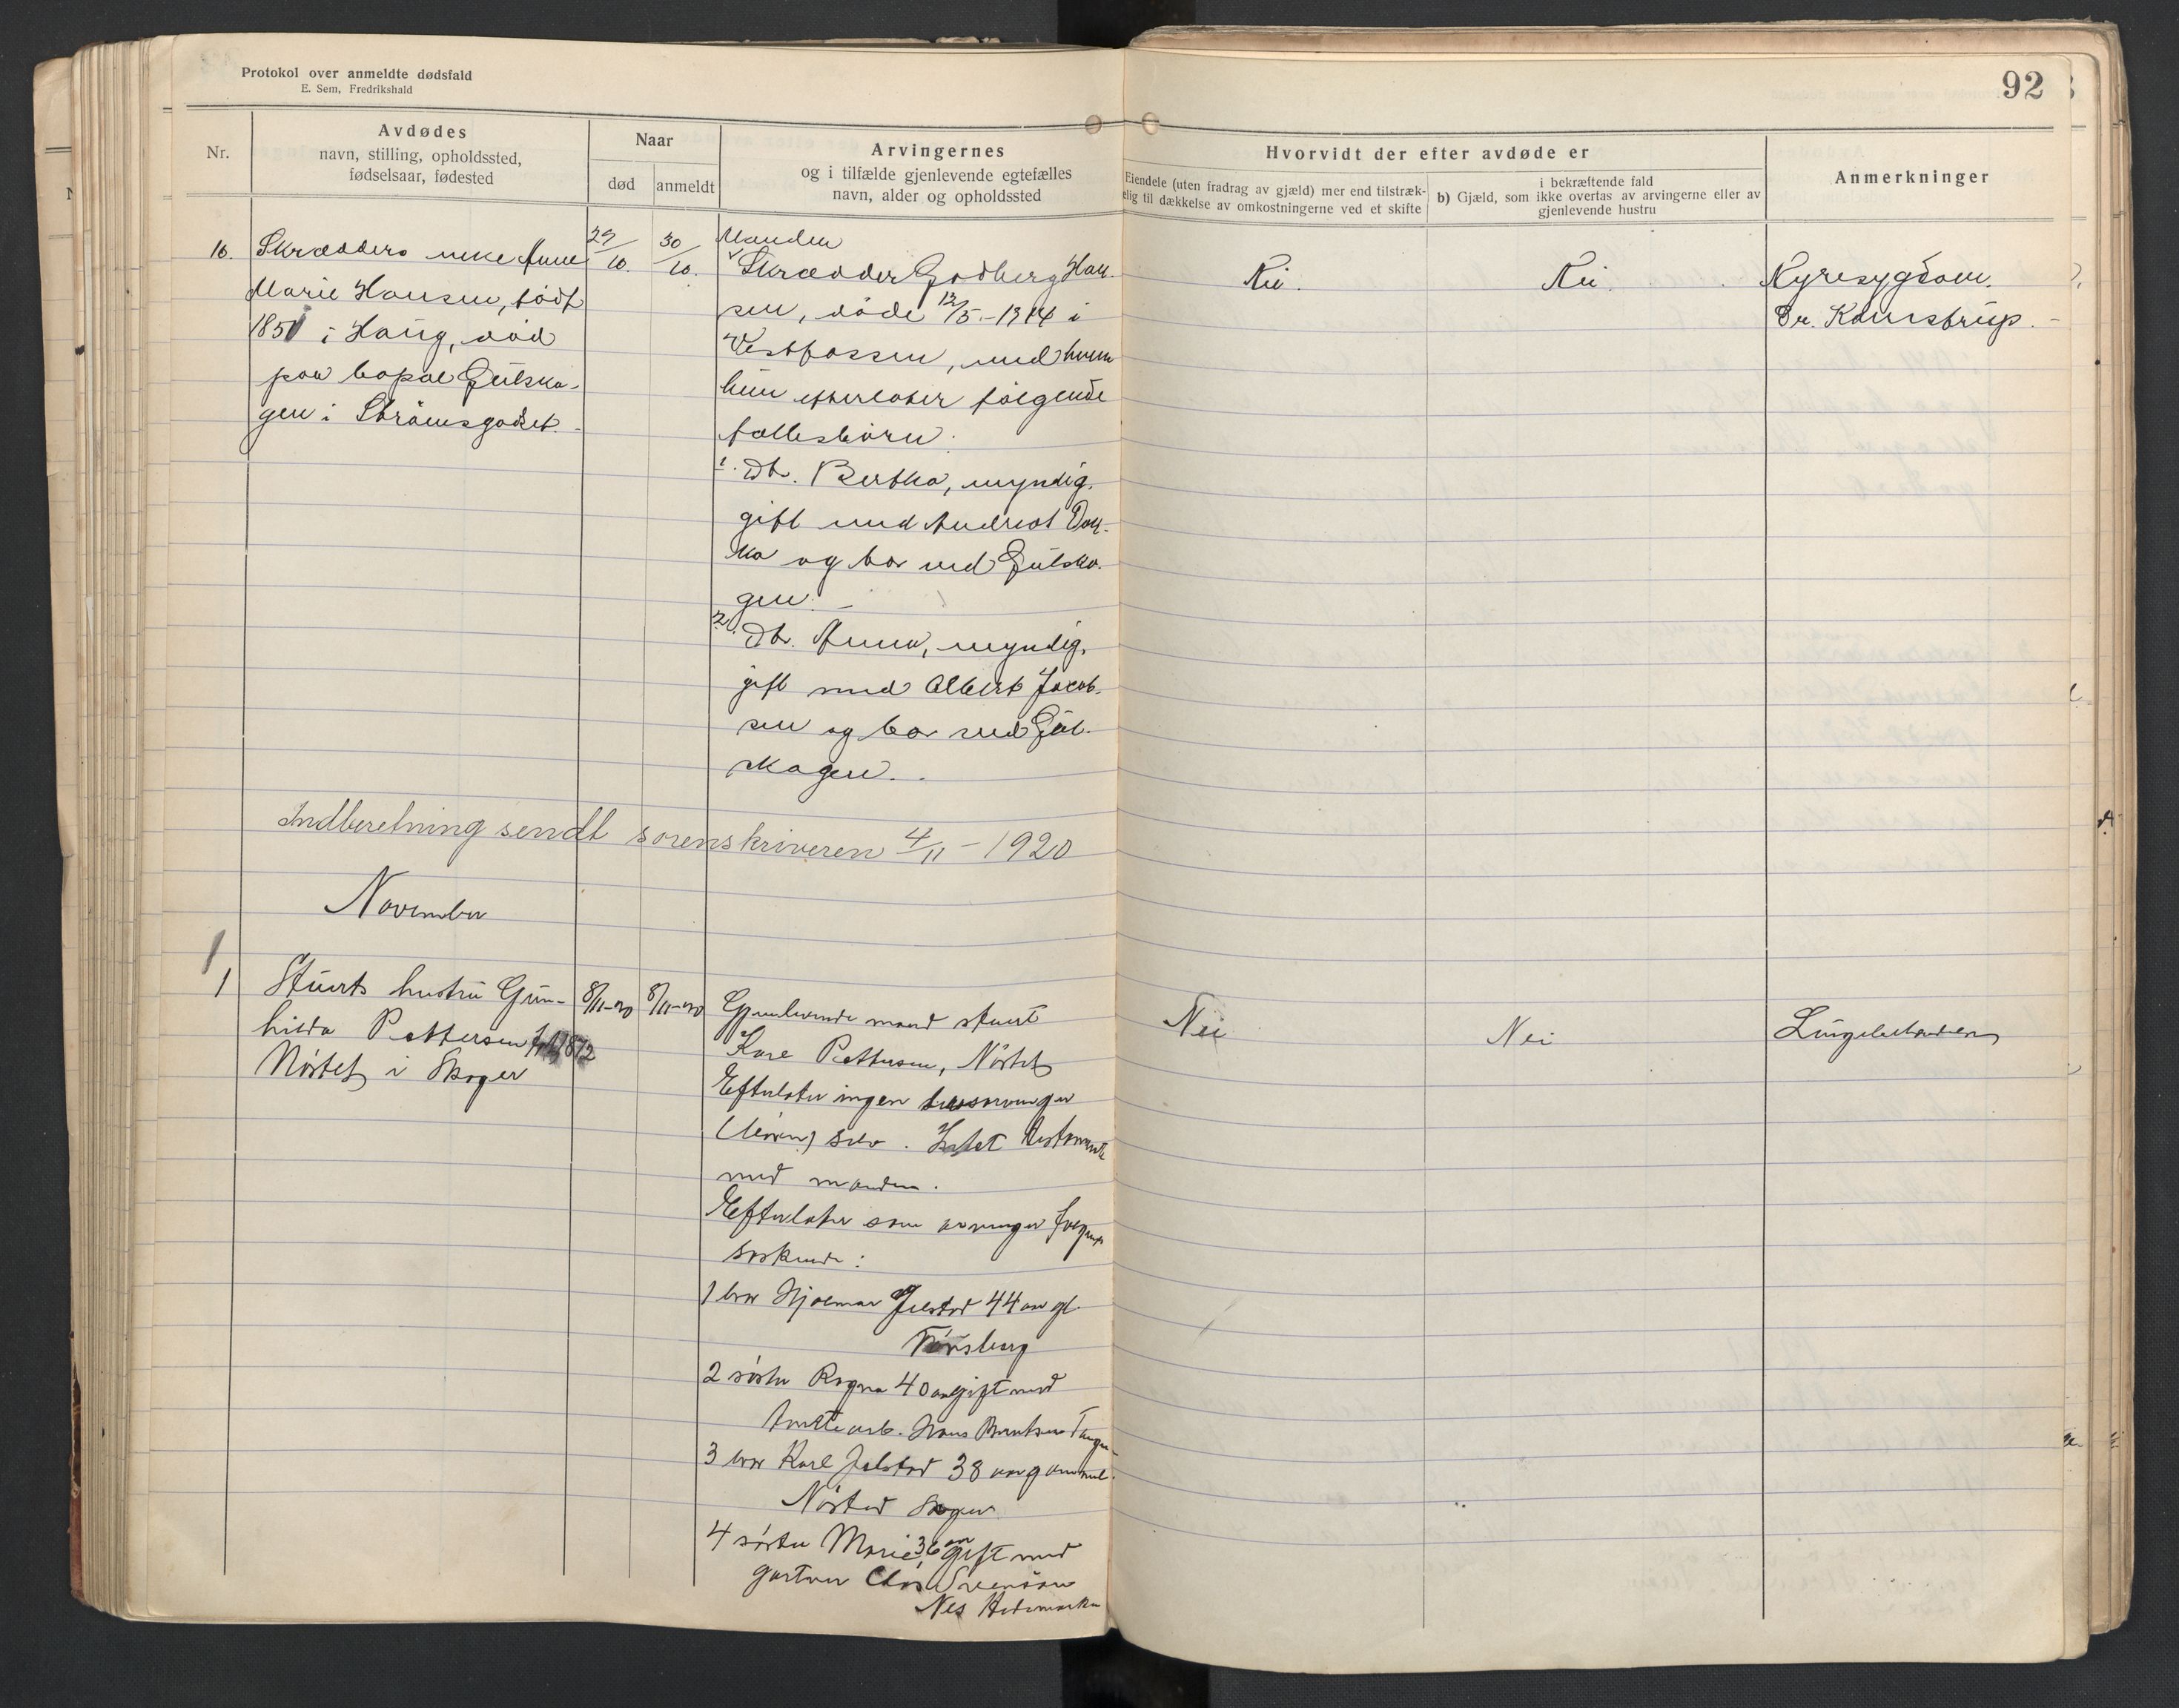 Protokol over anmeldte dødsfald
E. Sem, Fredrikshald
92
Nr.
Avdødes
navn, stilling, opholdssted,
fødselsaar, fødested
Naar
død
anmeldt
Arvingernes
og i tilfælde gjenlevende egtefælles
navn, alder og opholdssted
Hvorvidt der efter avdøde er
Eiendele (uten fradrag av gjæld) mer end tilstræk-
elig til dækkelse av omkostningerne ved et skifte
i bekræftende fald
b) Gjæld, som ikke overtas av arvingerne eller av
gjenlevende hustru
Anmerkninger
16.
Skrædders enke Anne
Marie Hansen, født
1851 i Haug, død
paa bopæl Gulsko-
gen i Strømsgodset.
29/10.
30/10.
Manden
Skrædder Godberg Han-
sen, døde 12/5.-1914 i
Vestfossen, med hvem
hun efterlater følgende
fællesbørn:
1. Dtr. Bertha, myndig,
gift med Andreas Dok-
ka og bor ved Gulsko-
gen. -
2. Dtr. Anna, myndig,
gift med Albert Jacob-
sen og bor ved Gul-
skogen.
Nei.
Nei.
Nyresygdom.
Dr. Kamstrup. -
Indberetning sendt sorenskriveren 4/11 - 1920
November
1
Stuerts hustru Gun-
hilda Pettersen f. 1872
Nøstet i Skoger
8/11-20
8/11-20
Gjenlevende mand stuert
Kare Pettersen, Nøstet
Efterlater ingen livsarvinger
(børn) selv. Intet testamente
med manden.
Efterlater som arvinger følgende
søskende:
1 bror Hjalmar Jelstad 44 aar gl.
Tønsberg
2 søster Ragna 40 aar gift med
arb. Hans Berntsen Tangen
3 bror Karl Jelstad 38 aar gammel.
Nøsted Skoger
4 søster Marie 36 aar gift med
gartner Svensen
Nes Hedemarken
Nei
Nei